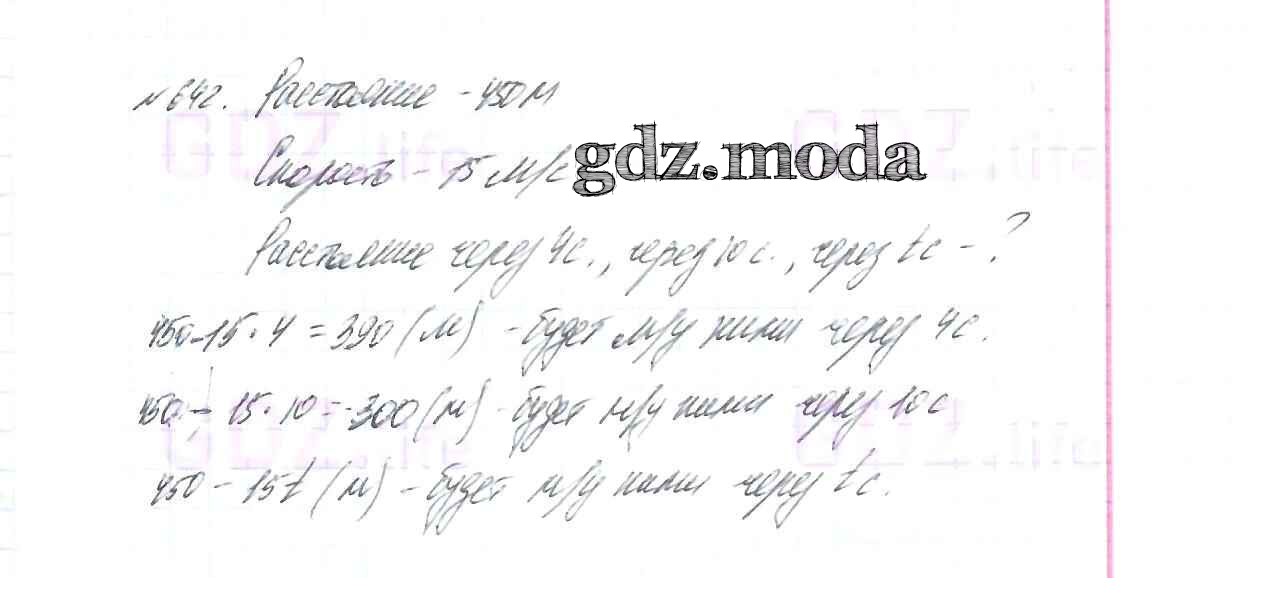 №642. Расстояние - 450 м
Скорость - 15 м/с
gdz.moda
Расстояние через 4с., через 10 с., через tс - ?
450-15·4 = 390 (м) - будет м/у ними через 4с.
450 - 15·10 = 300 (м) - будет м/у ними через 10с
450 - 15t (м) - будет м/у ними через tс.
GDZ.life
GDZ.life
GDZ.life
GDZ.life